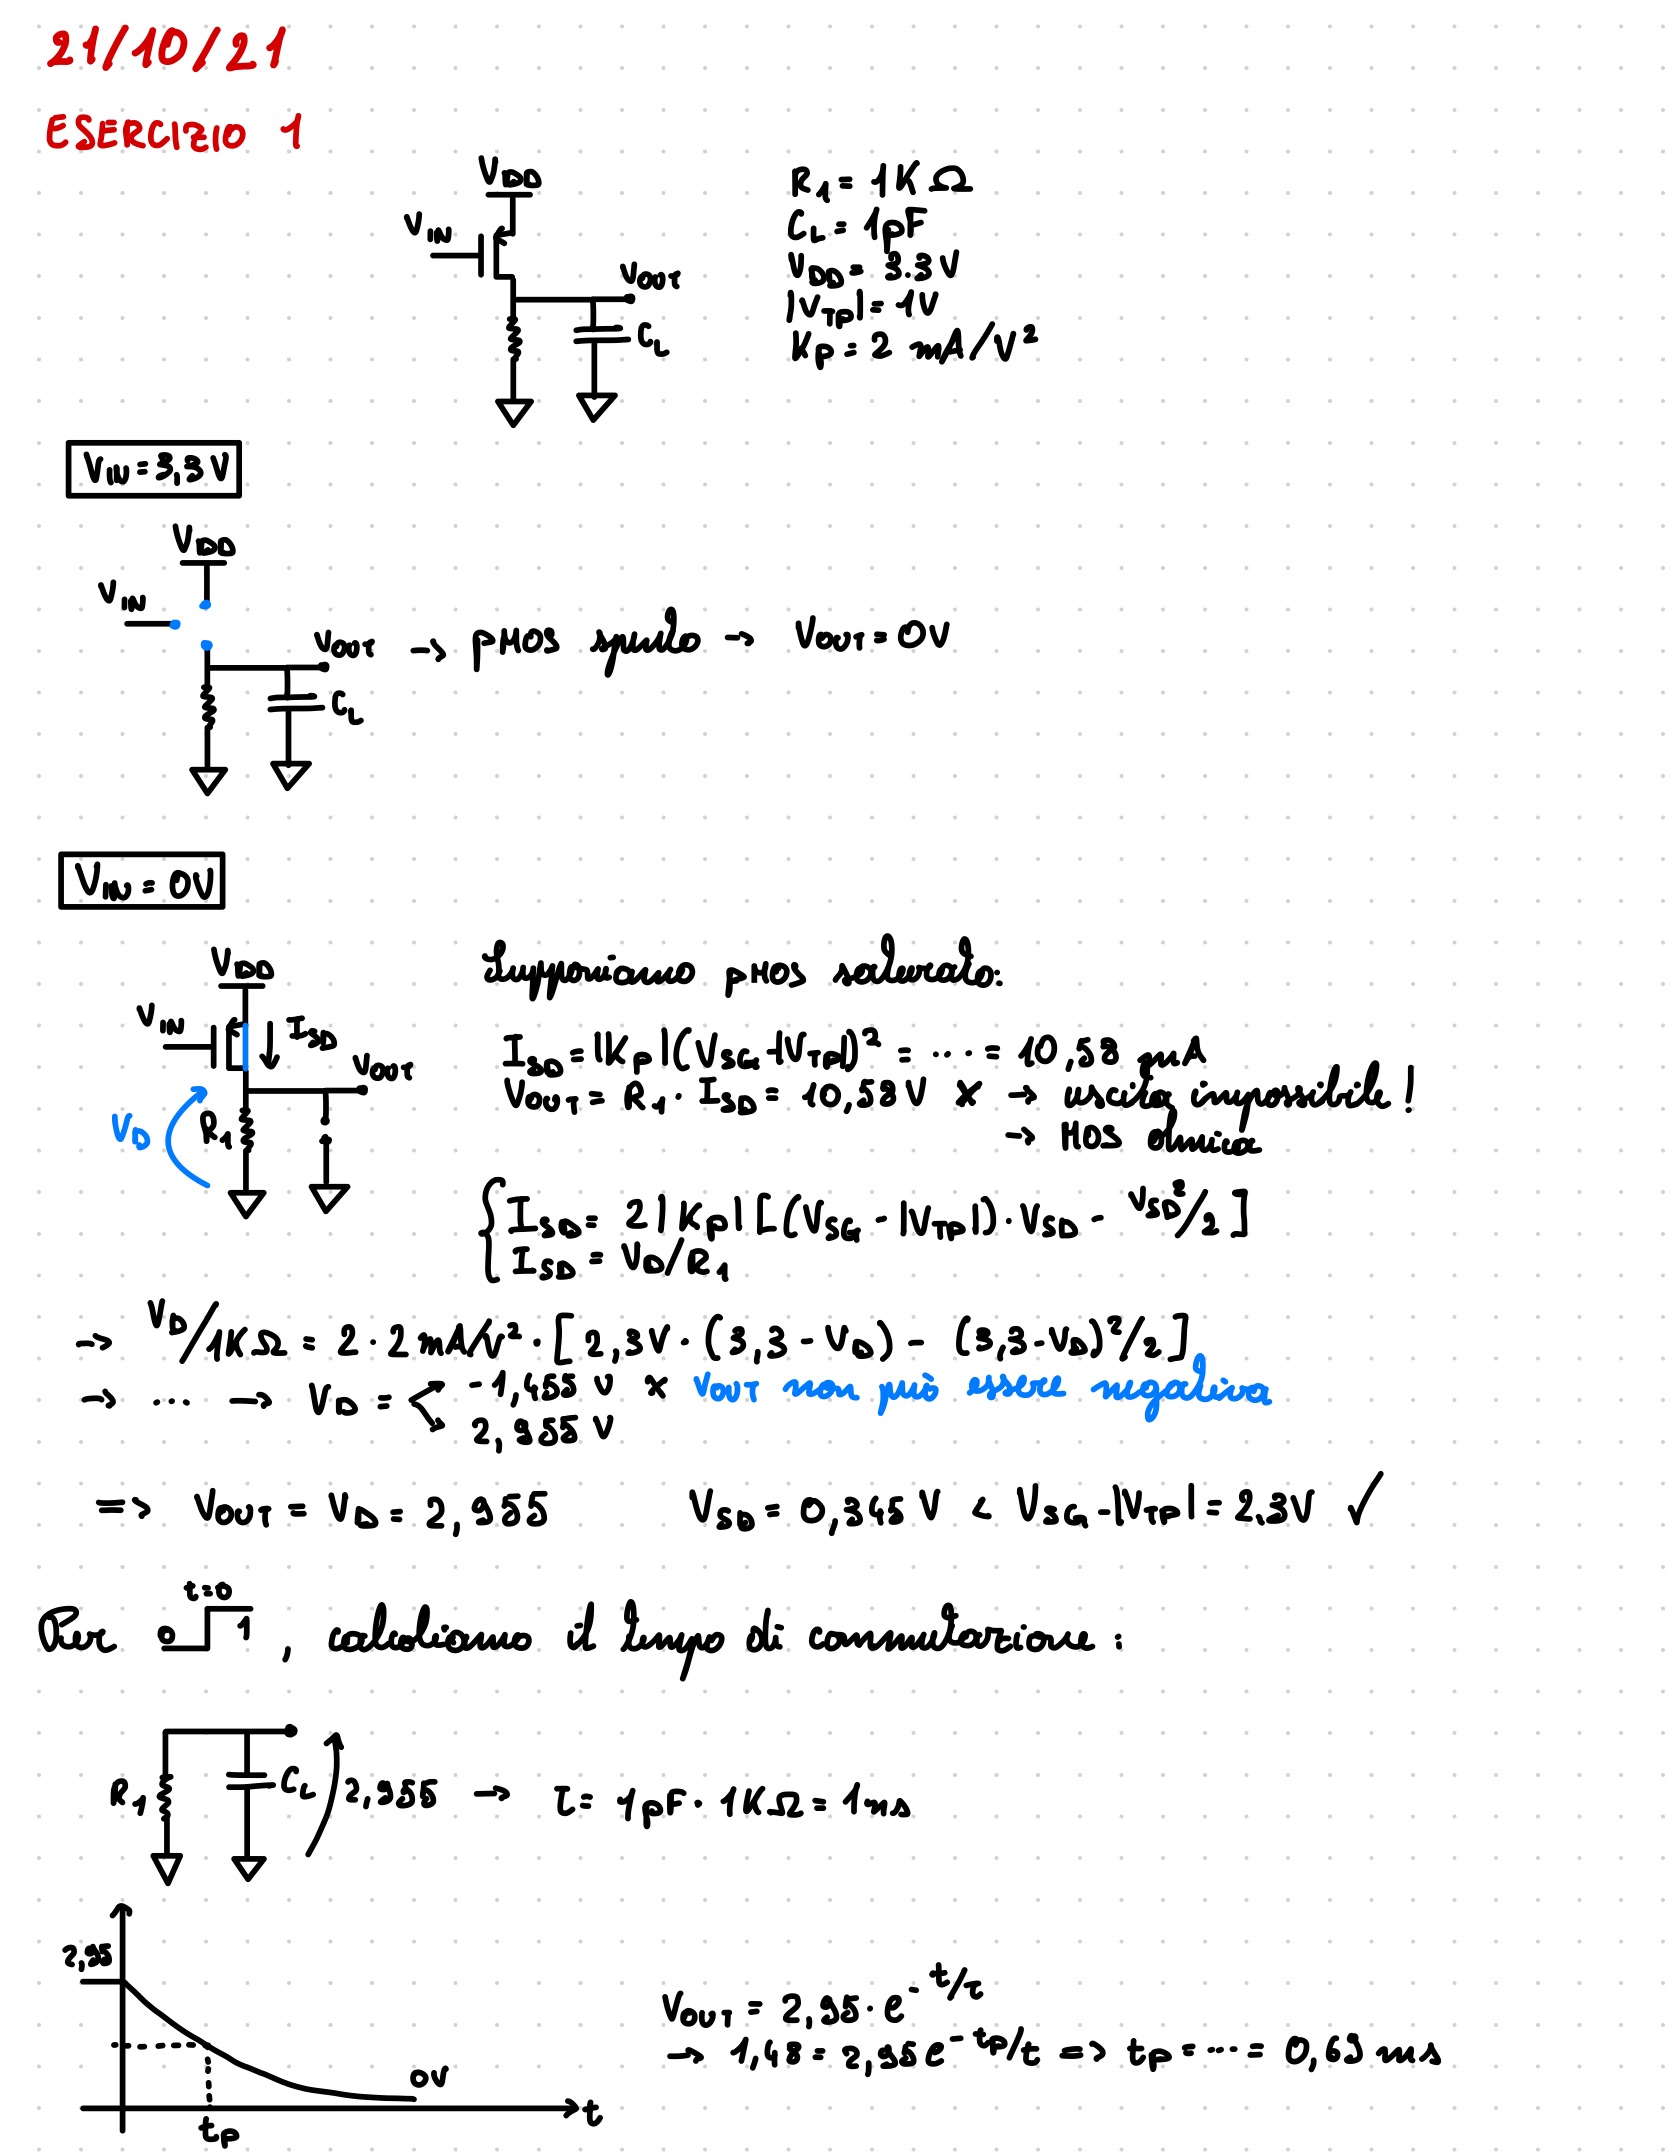 21/10/21
ESERCIZIO 1
VDD
VIN
VOUT
CL
R1 = 1KΩ
CL = 1pF
VDD = 3.3V
|VTP| = 1V
KP = 2 mA/V²
VIN = 3,3V
VDD
VIN
VOUT → pMOS spento → VOUT = 0V
CL
VIN = 0V
VDD
VIN
ISD
VOUT
VD
R1
Supponiamo pMOS saturato:
ISD = |KP|(VSG-|VTP|)² = ... = 10,58 mA
VOUT = R1 · ISD = 10,58V × → uscita impossibile!
→ MOS ohmica
{ ISD = 2|KP|[(VSG - |VTP|)·VSD - VSD²/2]
ISD = VD/R1
→ VD/1KΩ = 2·2mA/V²·[2,3V·(3,3-VD) - (3,3-VD)²/2]
→ ... → VD = < -1,455 V × VOUT non può essere negativa
2,955 V
=> VOUT = VD = 2,955 VSD = 0,345 V < VSG-|VTP| = 2.3V ✓
t=0
Per 0 1 , calcoliamo il tempo di commutazione:
R1 CL 2,955 → τ = 1pF · 1KΩ = 1ns
2,95
0V
tP
t
VOUT = 2,95·e^-t/τ
→ 1,48 = 2,95e^-tP/t => tP = ... = 0,69 ms